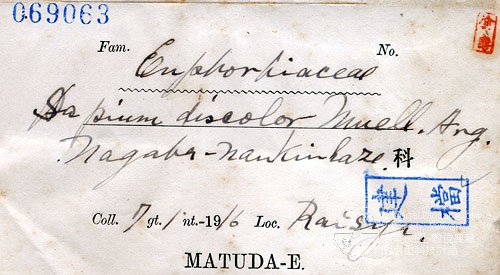 069063
Fam. Euphorpiaceae No.
Sapium discolor Muell. Arg.
Nagaba-nankinhaze 科
Coll. 17 gt. 1 nt.-1916 Loc. Raisya.
MATUDA-E.